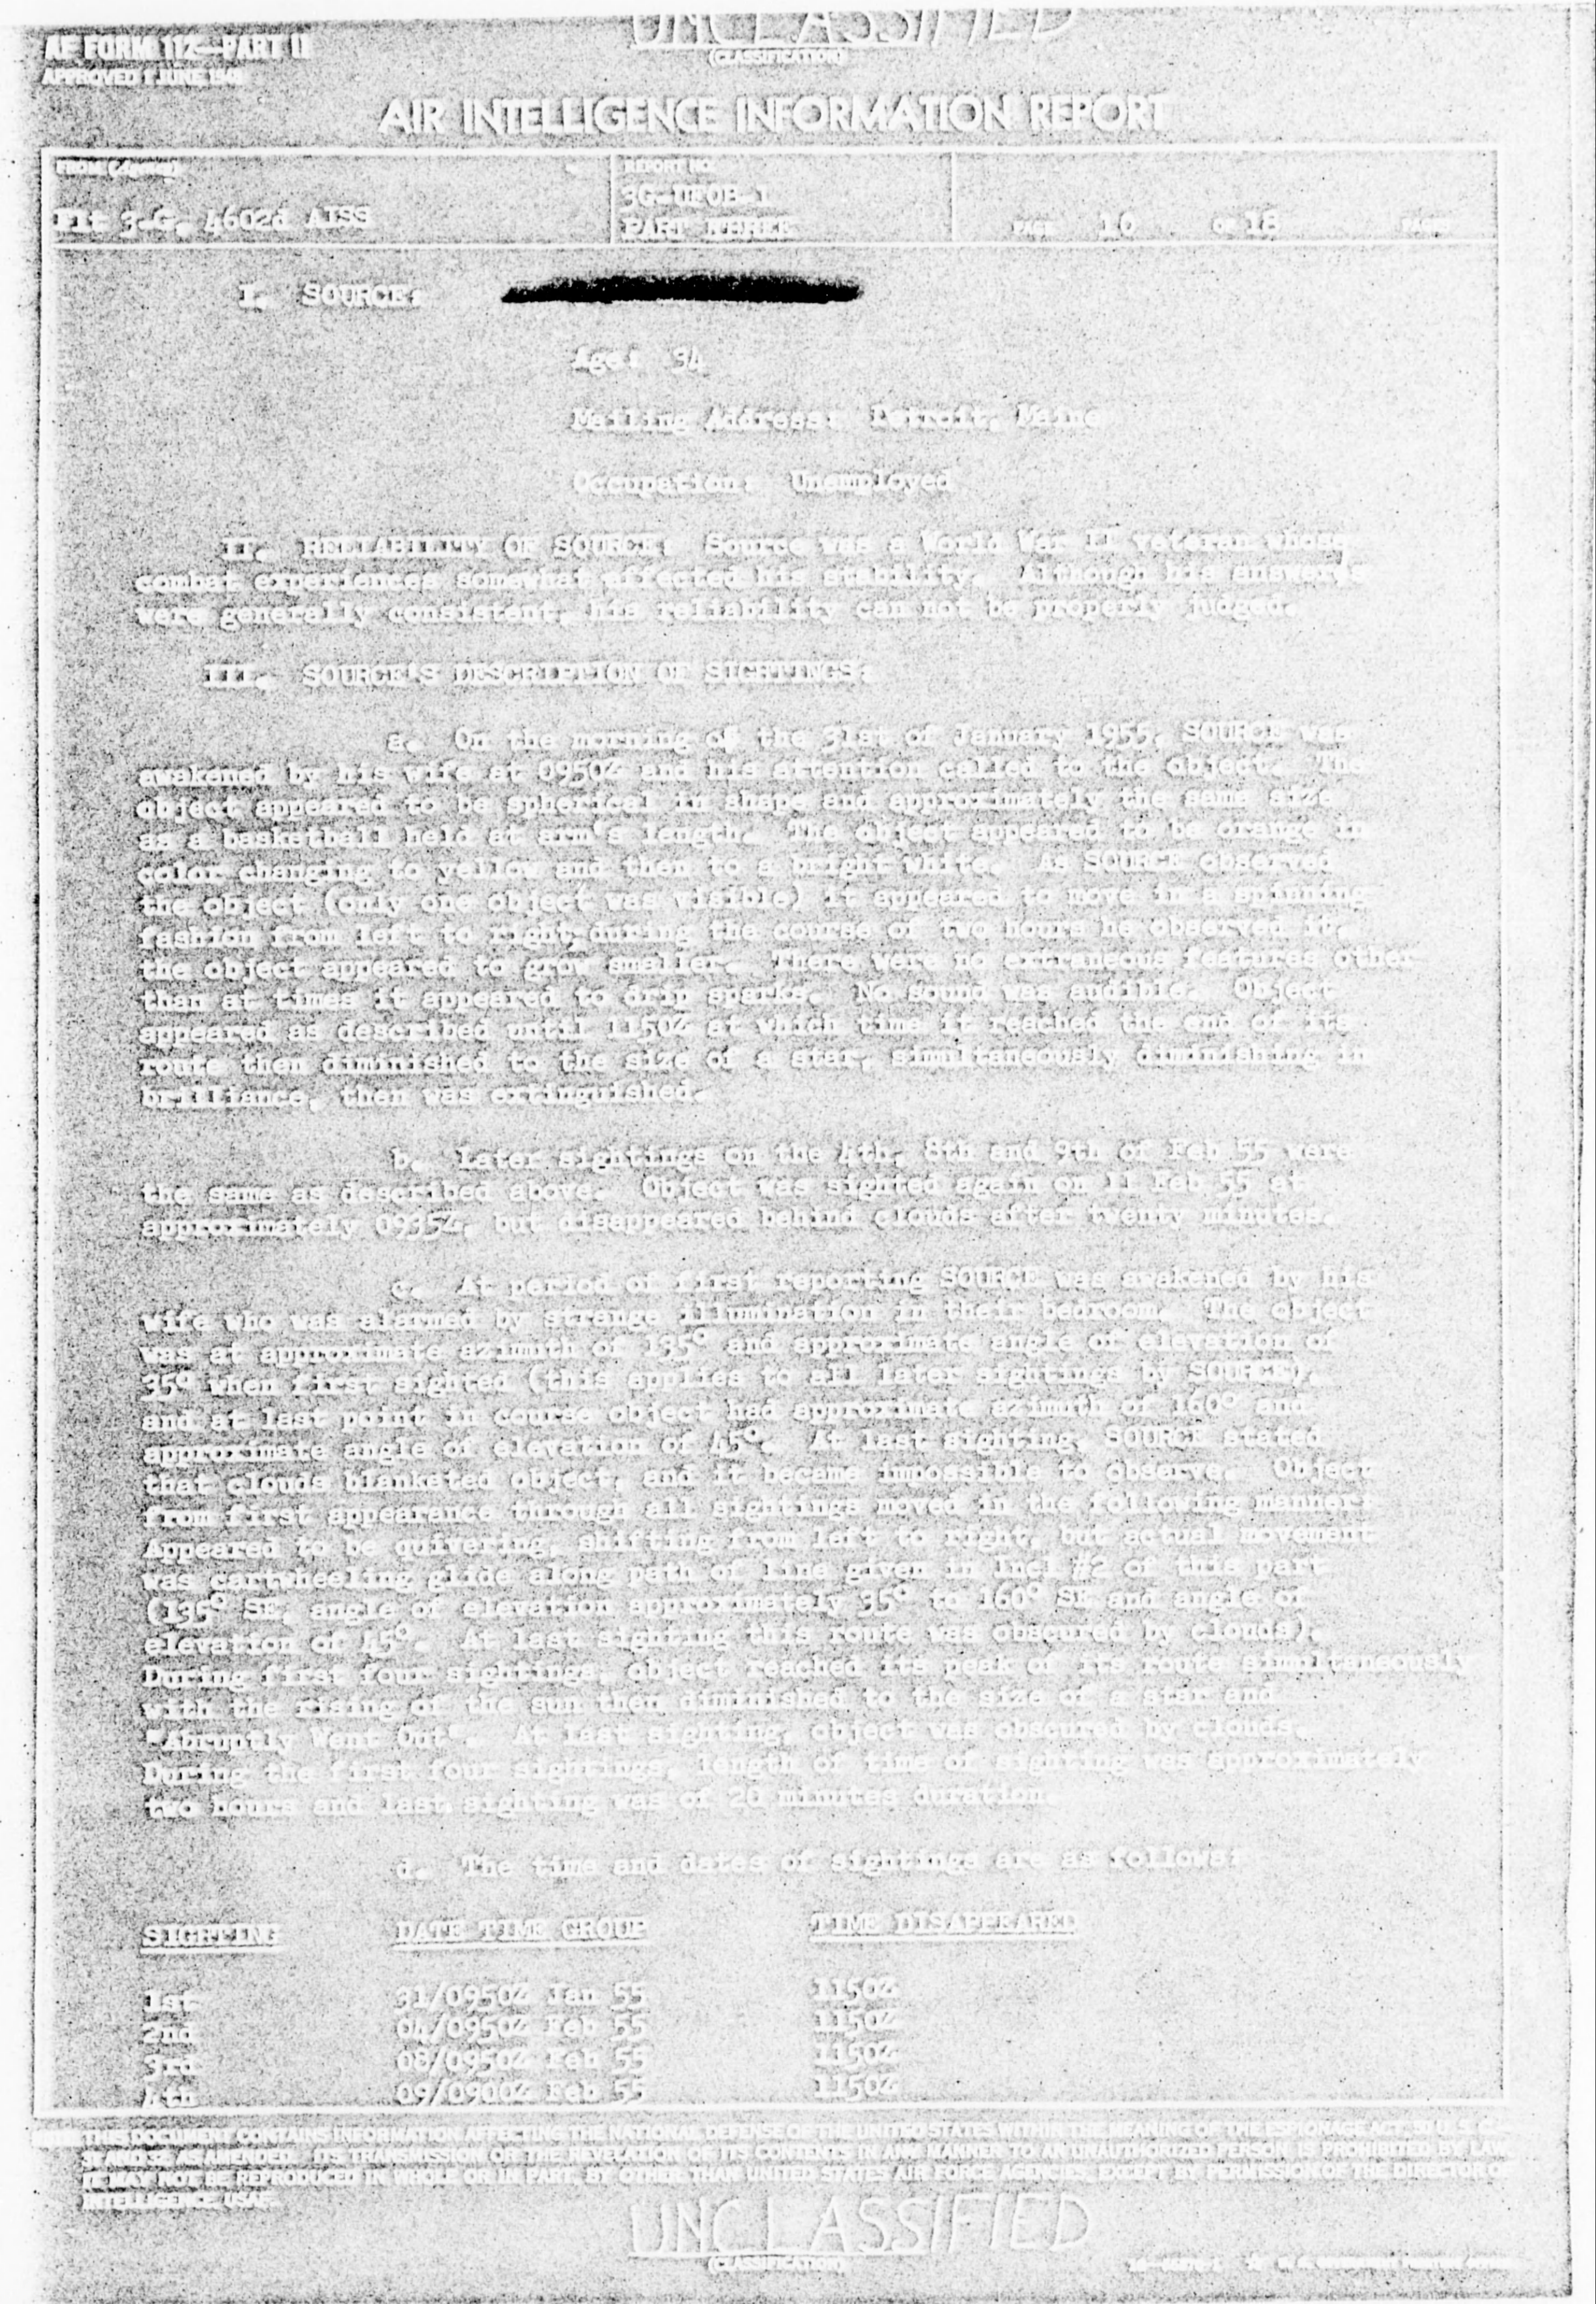 UNCLASSIFIED
(CLASSIFICATION)
AF FORM 112—PART II
APPROVED 1 JUNE 1948
AIR INTELLIGENCE INFORMATION REPORT
FROM (Agency)
REPORT NO.
Flt 3-G, 4602d AISS
3G-UFOB-1
PART THREE
PAGE 10 OF 18 PAGES
I. SOURCE:
Age: 34
Mailing Address: Detroit, Maine
Occupation: Unemployed
II. RELIABILITY OF SOURCE: Source was a World War II veteran whose
combat experiences somewhat affected his stability. Although his answers
were generally consistent, his reliability can not be properly judged.
III. SOURCE'S DESCRIPTION OF SIGHTINGS:
a. On the morning of the 31st of January 1955, SOURCE was
awakened by his wife at 0950Z and his attention called to the object. The
object appeared to be spherical in shape and approximately the same size
as a basketball held at arm's length. The object appeared to be orange in
color changing to yellow and then to a bright white. As SOURCE observed
the object (only one object was visible) it appeared to move in a spinning
fashion from left to right, during the course of two hours he observed it,
the object appeared to grow smaller. There were no extraneous features other
than at times it appeared to drip sparks. No sound was audible. Object
appeared as described until 1150Z at which time it reached the end of its
route then diminished to the size of a star, simultaneously diminishing in
brilliance, then was extinguished.
b. Later sightings on the 4th, 8th and 9th of Feb 55 were
the same as described above. Object was sighted again on 11 Feb 55 at
approximately 0935Z, but disappeared behind clouds after twenty minutes.
c. At period of first reporting SOURCE was awakened by his
wife who was alarmed by strange illumination in their bedroom. The object
was at approximate azimuth of 135° and approximate angle of elevation of
35° when first sighted (this applies to all later sightings by SOURCE),
and at last point in course object had approximate azimuth of 160° and
approximate angle of elevation of 45°. At last sighting, SOURCE stated
that clouds blanketed object, and it became impossible to observe. Object
from first appearance through all sightings moved in the following manner:
Appeared to be quivering, shifting from left to right, but actual movement
was cartwheeling glide along path of line given in Incl #2 of this part
(135° SE, angle of elevation approximately 35° to 160° SE and angle of
elevation of 45°. At last sighting this route was obscured by clouds).
During first four sightings, object reached its peak of its route simultaneously
with the rising of the sun then diminished to the size of a star and
"Abruptly Went Out". At last sighting, object was obscured by clouds.
During the first four sightings, length of time of sighting was approximately
two hours and last sighting was of 20 minutes duration.
d. The time and dates of sightings are as follows:
SIGHTING DATE TIME GROUP TIME DISAPPEARED
1st 31/0950Z Jan 55 1150Z
2nd 04/0950Z Feb 55 1150Z
3rd 08/0950Z Feb 55 1150Z
4th 09/0900Z Feb 55 1150Z
THIS DOCUMENT CONTAINS INFORMATION AFFECTING THE NATIONAL DEFENSE OF THE UNITED STATES WITHIN THE MEANING OF THE ESPIONAGE ACT, 50 U.S.C.
31 AND 32, AS AMENDED. ITS TRANSMISSION OR THE REVELATION OF ITS CONTENTS IN ANY MANNER TO AN UNAUTHORIZED PERSON IS PROHIBITED BY LAW.
IT MAY NOT BE REPRODUCED IN WHOLE OR IN PART, BY OTHER THAN UNITED STATES AIR FORCE AGENCIES, EXCEPT BY PERMISSION OF THE DIRECTOR OF
INTELLIGENCE, USAF.
UNCLASSIFIED
(CLASSIFICATION)